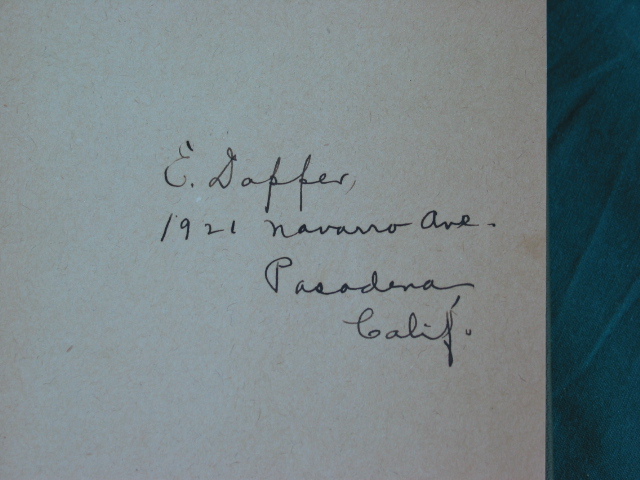 E. Dapper,
1921 Navarro Ave.
Pasadena,
Calif.